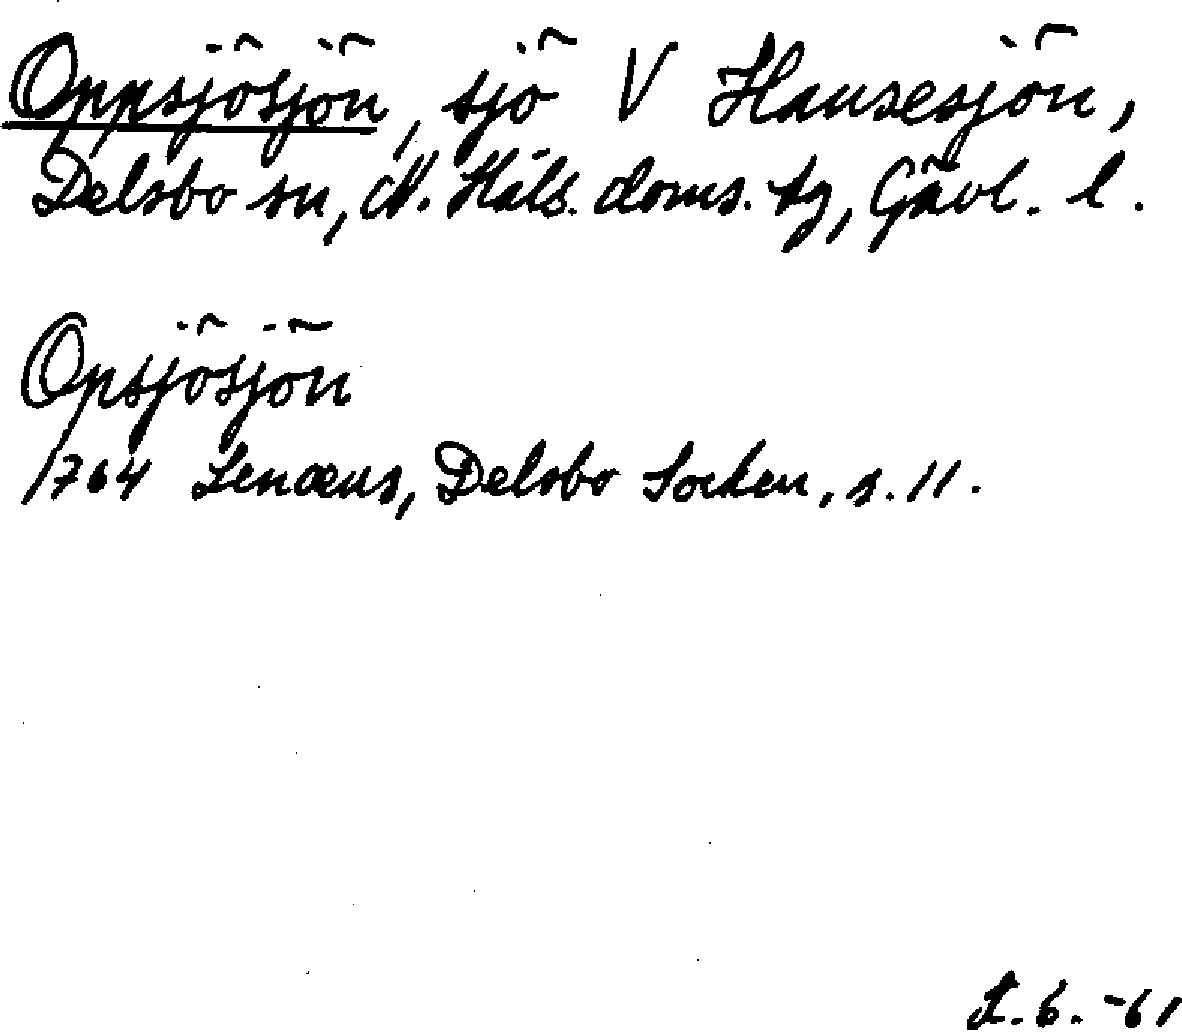 Oppsjösjön, sjö V Hansesjön,
Delsbo sn, N. Häls. doms. tg, Gävl. l.
Opsjösjön
1764 Lenæus, Delsbo Socken, s. 11.
L. 6. -61